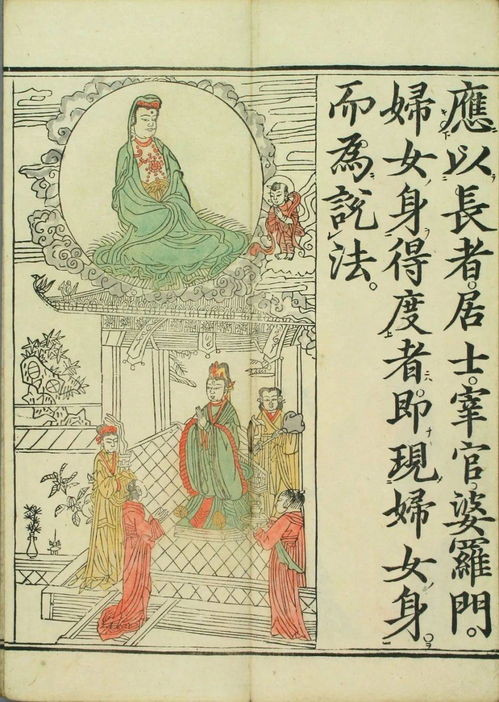 應以長者。居士。宰官。婆羅門。
婦女身得度者。即現婦女身。
而為說法。